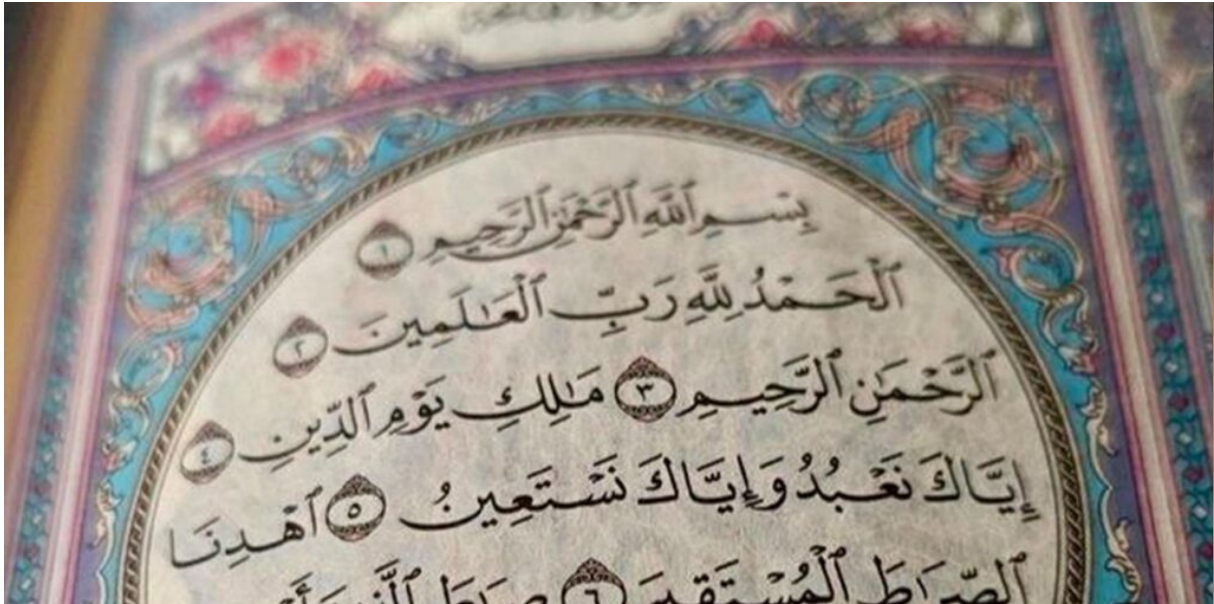 بِسْمِ ٱللَّهِ ٱلرَّحْمَٰنِ ٱلرَّحِيمِ ١
ٱلْحَمْدُ لِلَّهِ رَبِّ ٱلْعَٰلَمِينَ ٢
ٱلرَّحْمَٰنِ ٱلرَّحِيمِ ٣ مَٰلِكِ يَوْمِ ٱلدِّينِ ٤
إِيَّاكَ نَعْبُدُ وَإِيَّاكَ نَسْتَعِينُ ٥ ٱهْدِنَا
ٱلصِّرَٰطَ ٱلْمُسْتَقِيمَ ٦ صِرَٰطَ ٱلَّذِينَ